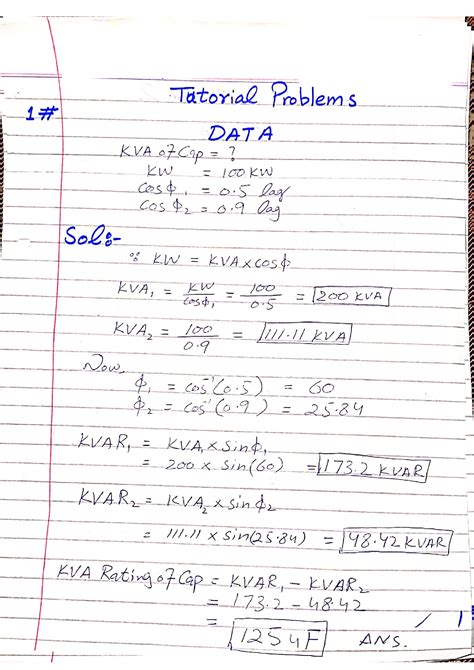 Tutorial Problems
1#
DATA
KVA of Cap = ?
KW = 100 KW
cosϕ1 = 0.5 lag
cosϕ2 = 0.9 lag
Sol:-
∵ KW = KVA×cosϕ
KVA1 = KW/cosϕ1 = 100/0.5 = 200 KVA
KVA2 = 100/0.9 = 111.11 KVA
Now,
ϕ1 = cos⁻¹(0.5) = 60
ϕ2 = cos⁻¹(0.9) = 25.84
KVAR1 = KVA1 × sinϕ1
= 200 × sin(60) = 173.2 KVAR
KVAR2 = KVA2 × sinϕ2
= 111.11 × sin(25.84) = 48.42 KVAR
KVA Rating of Cap = KVAR1 - KVAR2
= 173.2 - 48.42
= 125uF ANS.